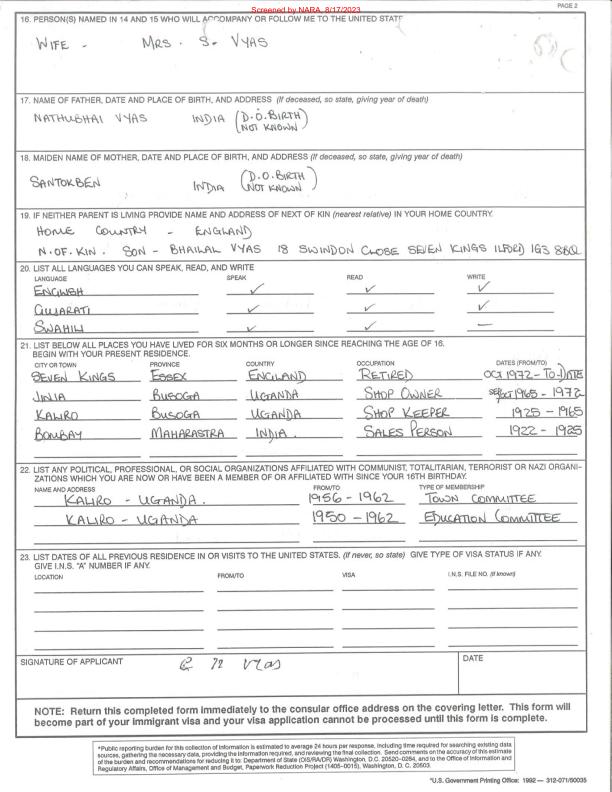 Screened by NARA, 8/17/2023
PAGE 2
16. PERSON(S) NAMED IN 14 AND 15 WHO WILL ACCOMPANY OR FOLLOW ME TO THE UNITED STAT
WIFE - MRS. S. VYAS
17. NAME OF FATHER, DATE AND PLACE OF BIRTH, AND ADDRESS (If deceased, so state, giving year of death)
NATHUBHAI VYAS INDIA (D.O.BIRTH NOT KNOWN)
18. MAIDEN NAME OF MOTHER, DATE AND PLACE OF BIRTH, AND ADDRESS (If deceased, so state, giving year of death)
SANTOKBEN INDIA (D.O.BIRTH NOT KNOWN)
19. IF NEITHER PARENT IS LIVING PROVIDE NAME AND ADDRESS OF NEXT OF KIN (nearest relative) IN YOUR HOME COUNTRY.
HOME COUNTRY - ENGLAND
N.OF.KIN. SON - BHAILAL VYAS 18 SWINDON CLOSE SEVEN KINGS ILFORD IG3 8BQ
20. LIST ALL LANGUAGES YOU CAN SPEAK, READ, AND WRITE
LANGUAGE SPEAK READ WRITE
ENGLISH ✓ ✓ ✓
GUJARATI ✓ ✓ ✓
SWAHILI ✓ ✓ —
21. LIST BELOW ALL PLACES YOU HAVE LIVED FOR SIX MONTHS OR LONGER SINCE REACHING THE AGE OF 16.
BEGIN WITH YOUR PRESENT RESIDENCE.
CITY OR TOWN PROVINCE COUNTRY OCCUPATION DATES (FROM/TO)
SEVEN KINGS ESSEX ENGLAND RETIRED OCT 1972 - TO-DATE
JINJA BUSOGA UGANDA SHOP OWNER 1965 - 1972
KALIRO BUSOGA UGANDA SHOP KEEPER 1925 - 1965
BOMBAY MAHARASTRA INDIA. SALES PERSON 1922 - 1925
22. LIST ANY POLITICAL, PROFESSIONAL, OR SOCIAL ORGANIZATIONS AFFILIATED WITH COMMUNIST, TOTALITARIAN, TERRORIST OR NAZI ORGANI-
ZATIONS WHICH YOU ARE NOW OR HAVE BEEN A MEMBER OF OR AFFILIATED WITH SINCE YOUR 16TH BIRTHDAY.
NAME AND ADDRESS FROM/TO TYPE OF MEMBERSHIP
KALIRO - UGANDA. 1956 - 1962 TOWN COMMITTEE
KALIRO - UGANDA 1950 - 1962 EDUCATION COMMITTEE
23. LIST DATES OF ALL PREVIOUS RESIDENCE IN OR VISITS TO THE UNITED STATES. (If never, so state) GIVE TYPE OF VISA STATUS IF ANY.
GIVE I.N.S. "A" NUMBER IF ANY.
LOCATION FROM/TO VISA I.N.S. FILE NO. (If known)
SIGNATURE OF APPLICANT DATE
NOTE: Return this completed form immediately to the consular office address on the covering letter. This form will
become part of your immigrant visa and your visa application cannot be processed until this form is complete.
*Public reporting burden for this collection of information is estimated to average 24 hours per response, including time required for searching existing data
sources, gathering the necessary data, providing the information required, and reviewing the final collection. Send comments on the accuracy of this estimate
of the burden and recommendations for reducing it to: Department of State (OIS/RA/DR) Washington, D.C. 20520-0264, and to the Office of Information and
Regulatory Affairs, Office of Management and Budget, Paperwork Reduction Project (1405-0015), Washington, D. C. 20503.
*U.S. Government Printing Office: 1992 — 312-071/60035